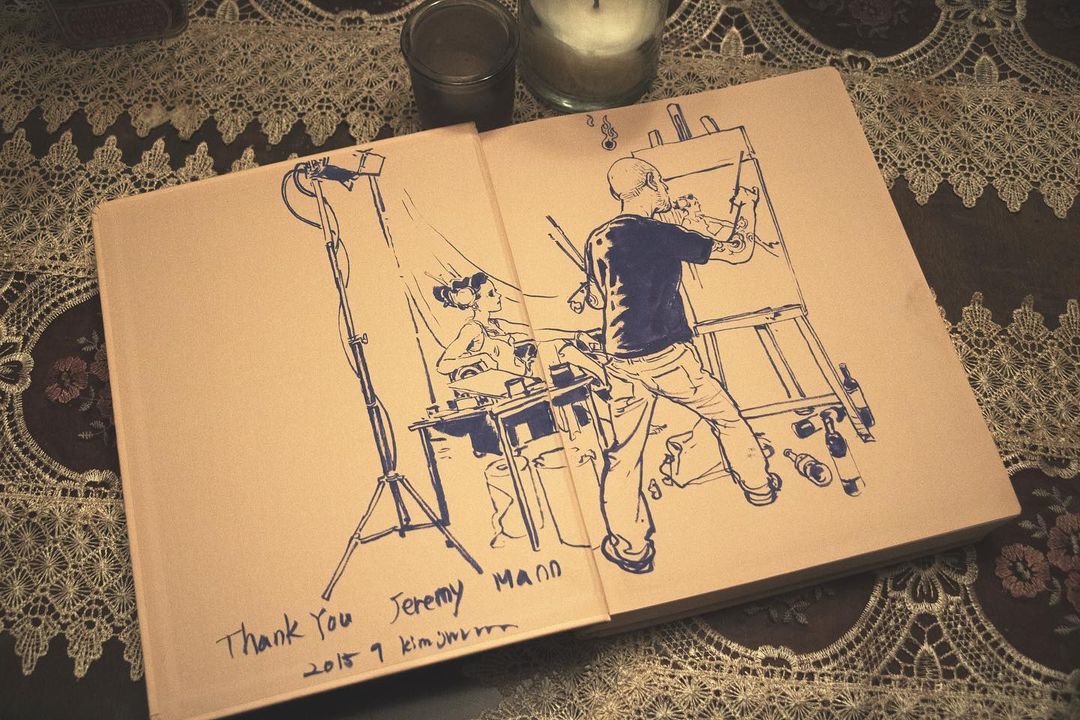 Thank You Jeremy Mann
2015 9